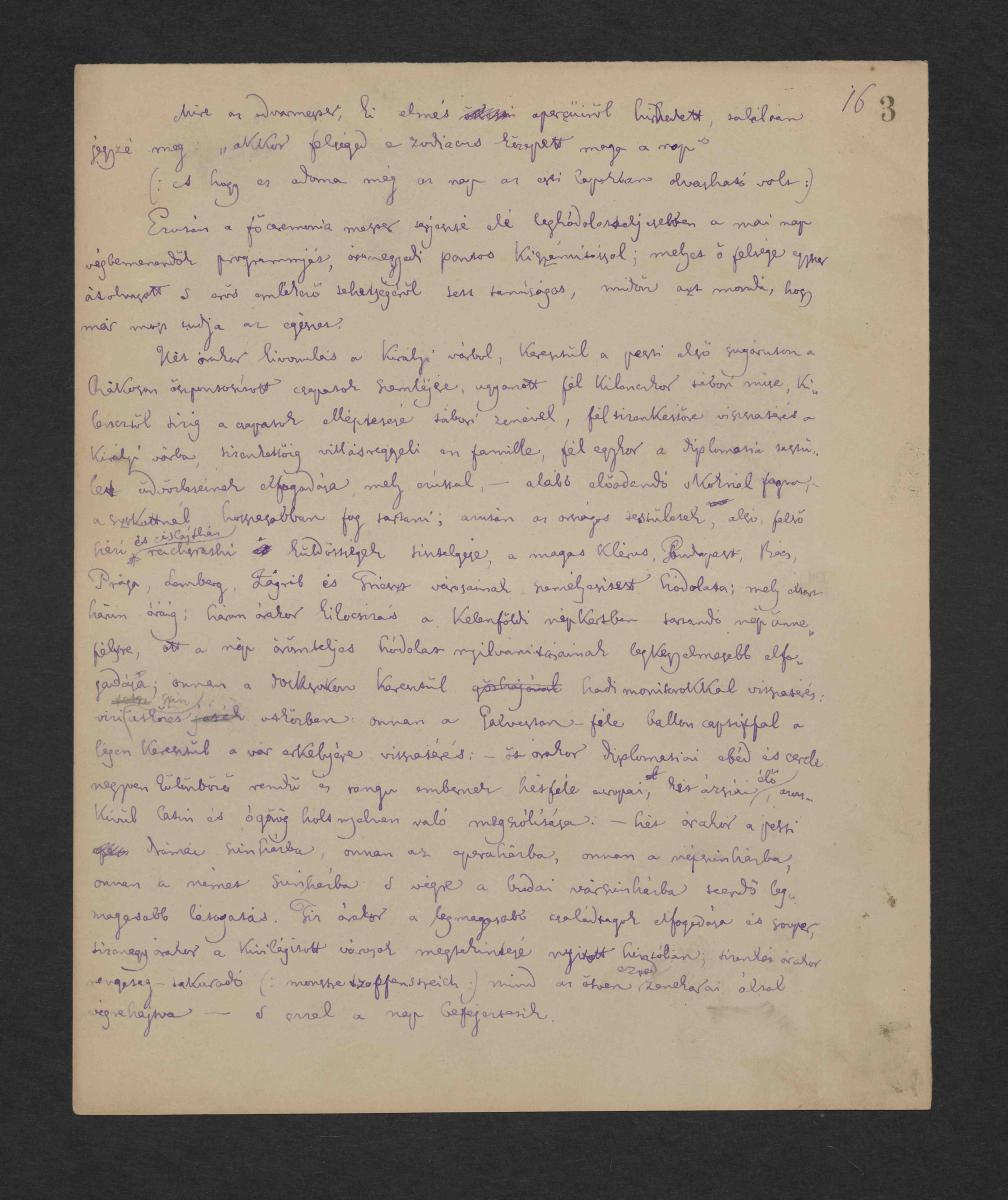 16 3
Mire az udvarmester, ki elmés aperçüiről hirhedett, találóan
jegyzé meg: „akkor felséged e zodiacus közepett maga a nap”
(: S hogy ez adoma még az nap az esti lapokban olvasható volt :)
Ezután a főceremonia mester terjeszté elé leghódolatteljesebben a mai nap
végbemenendők programmját, óranegyedi pontos kiszámitással; melyet ő felsége egyszer
átolvasott s erős emlékező tehetségéről tett tanúságot, midőn azt mondá, hogy
már most tudja az egészet.
Hét órakor kivonulás a királyi várból, keresztül a pesti első sugáruton a
Rákoson öszpontositott csapatok szemléjére, ugyanott fél kilenczkor tábori mise, ki-
lencztől tizig a csapatok elléptetése tábori zenével, fél tizenkettőre visszatérés a
királyi várba, tizenkettőig villásreggeli en famille, fél egykor a diplomatiai testü-
let üdvözleteinek elfogadása mely ezúttal, — alább előadandó oknál fogva, –
a szokottnál hosszabban fog tartani; azután az országos testületek, alsó, felső
házi és cislajthán reichsrathi küldöttségek tisztelgése, a magas klérus, Budapest, Bécs,
Prága, Lemberg, Zágráb és Trieszt városainak személyesitett hódolata; mely eltart
három óráig; három órakor kikocsizás a Kelenföldi népkertben tartandó népünne-
pélyre, ott a nép örömteljes hódolat nyilvánitásainak legkegyelmesebb elfo-
gadása; onnan a dockokon keresztül hadi monitorokkal visszatérés:
utközben: onnan a Galveston-féle ballon captiffal a
légen keresztül a vár erkélyére visszatérés: – öt órakor diplomatiai ebéd és cercle
negyven különböző rendű és rangu embernek hétféle europai, két ázsiai élő, azon-
kivül latin és ógörög holt nyelven való megszólitása: – hét órakor a pesti
drámai szinházba, onnan az operaházba, onnan a népszinházba,
onnan a német szinházba s végre a budai várszinházba teendő leg-
magasabb látogatás. Tiz órakor a legmagasabb családtagok elfogadása és souper,
tizenegy órakor a kivilágitott városok megtekintése nyitott hintóban; tizenkét órakor
rengeteg-takarodó (: monstre zapfenstreich :) mind az ötven ezred zenekarai által
végrehajtva — s ezzel a nap befejeztetik.